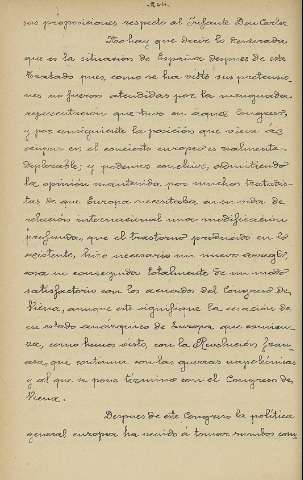 sus proposiciones respecto al Infante Don Carlos.
No hay que decir lo desairada
que es la situación de España despues de este
tratado pues, como se ha visto sus pretensio-
nes no fueron atendidas por la menguada
representación que tuvo en aquel Congreso,
y por consiguiente la posición que viene á
ocupar en el concierto europeo es realmente
deplorable; y podemos concluir, admitiendo
la opinión mantenida por muchos tratadis-
tas de que Europa necesitaba en su vida de
relación internacional una modificación
profunda, que el trastorno producido en lo
existente, hizo necesario un nuevo arreglo,
cosa no conseguida totalmente de un modo
satisfactorio con los acuerdos del Congreso de
Viena, aunque este signifique la cesación de
un estado anárquico de Europa, que comien-
za, como hemos visto, con la Revolución fran-
cesa, que continua con las guerras napoleónicas
y al que se pone término con el Congreso de
Viena.
Despues de este Congreso la política
general europea ha venido á tomar rumbos com-